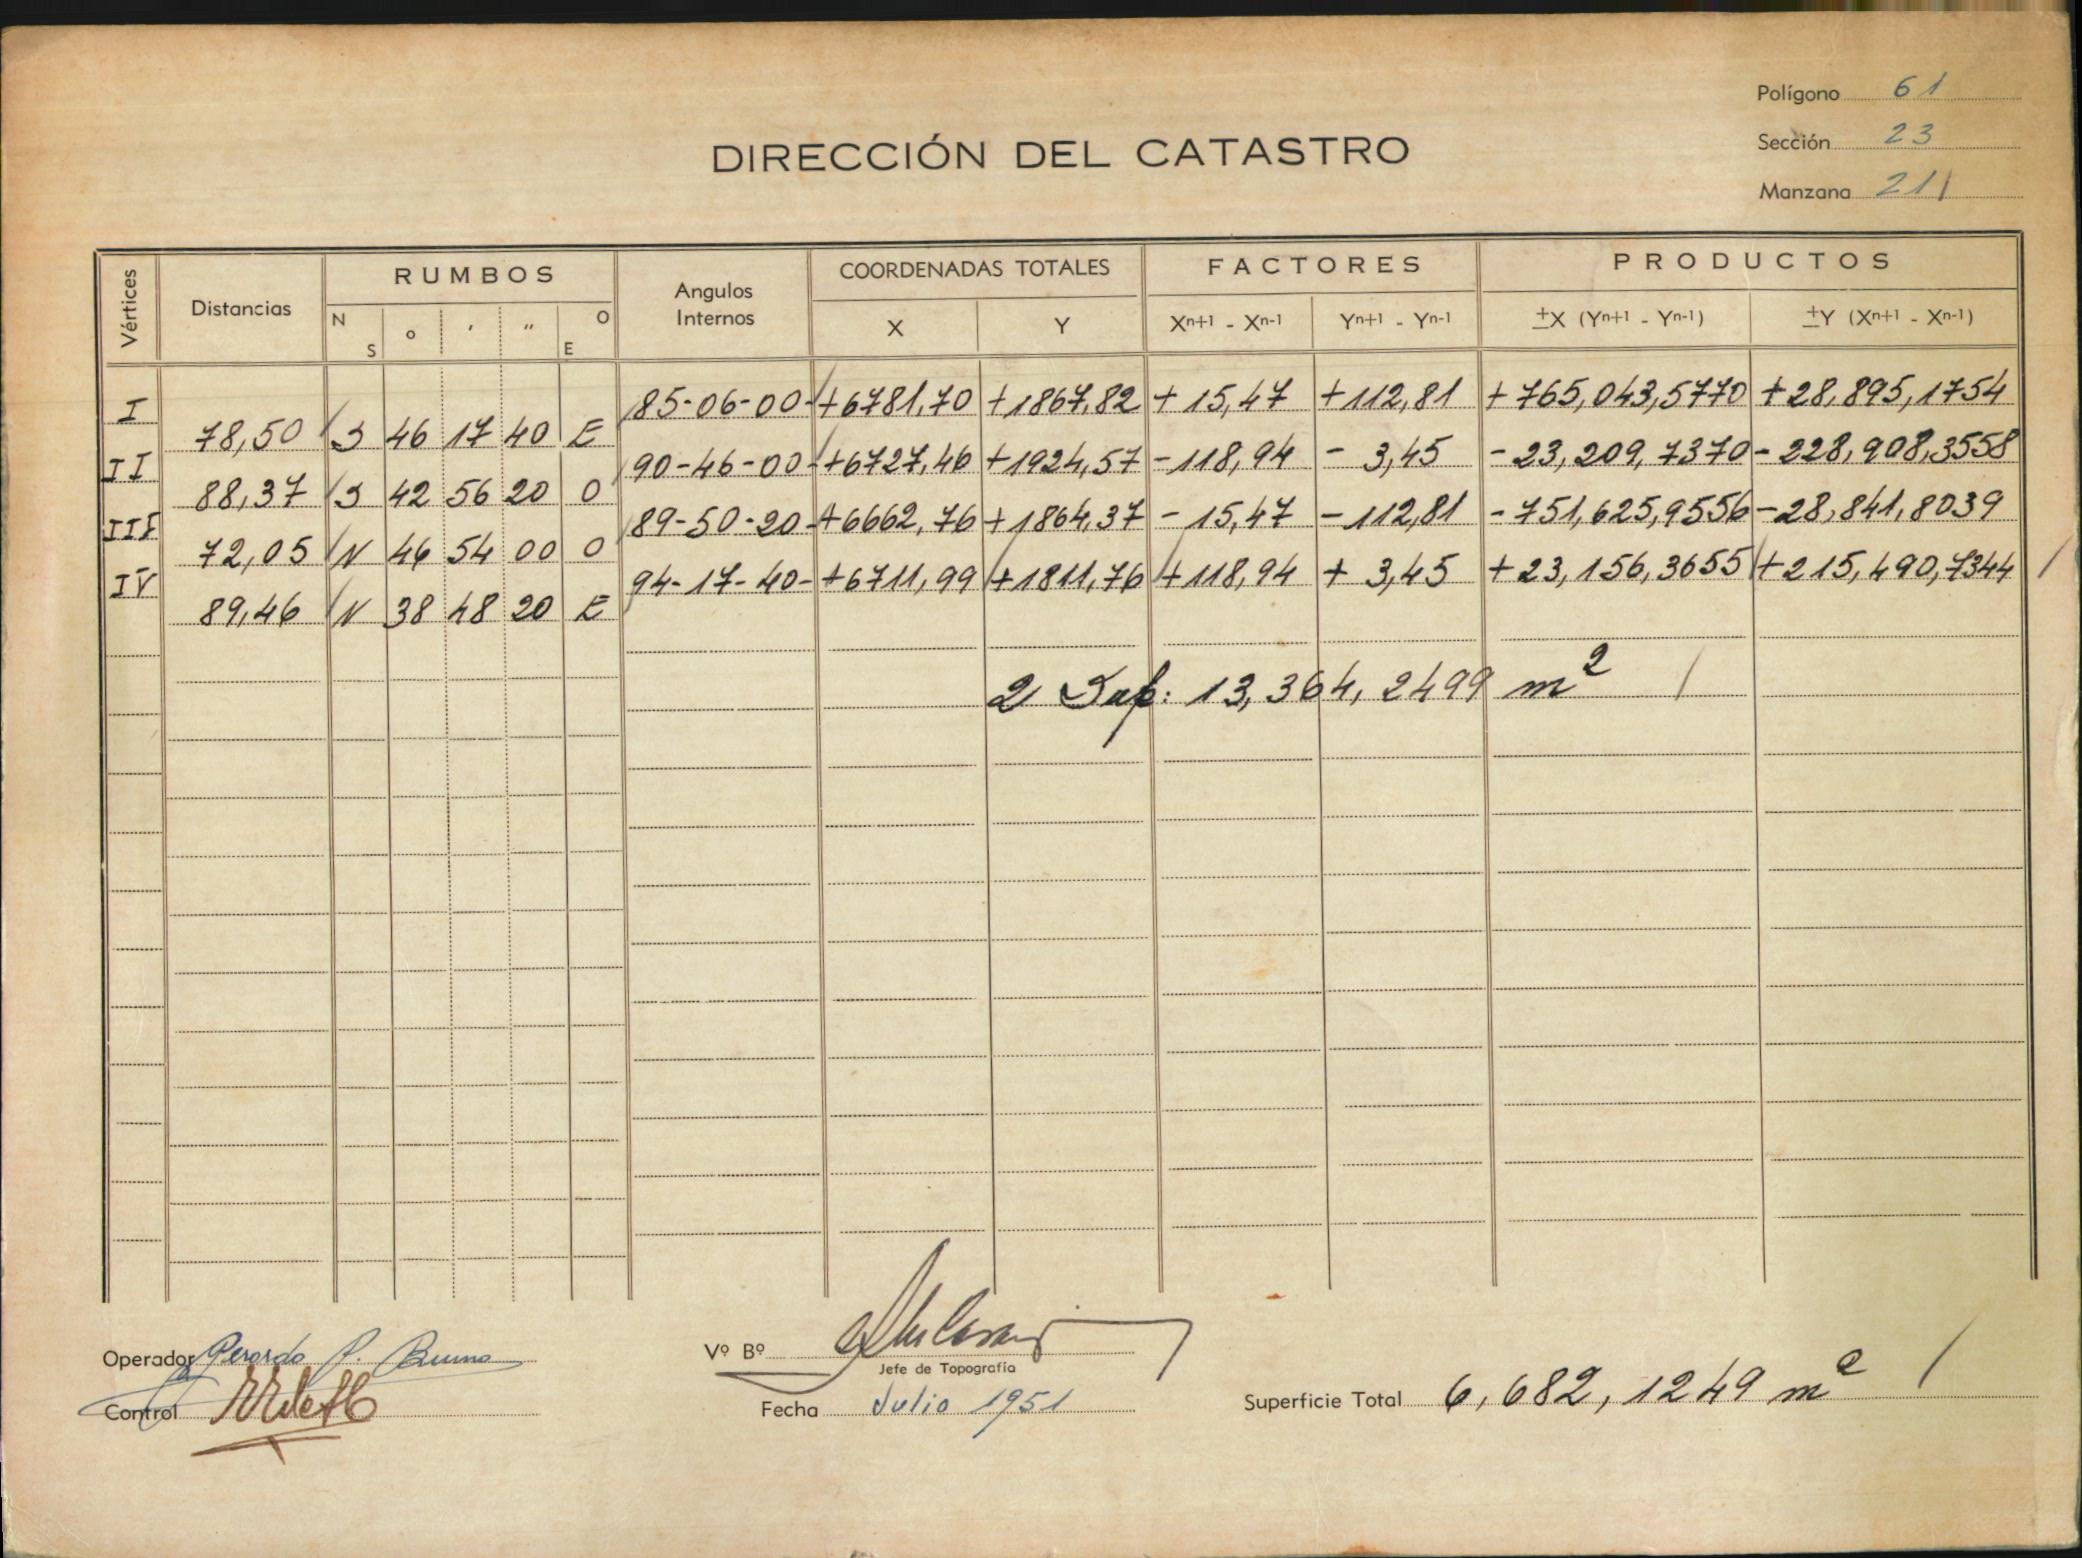 Polígono 61
DIRECCIÓN DEL CATASTRO
Sección 23
Manzana 211
Vértices Distancias RUMBOS N S ° ′ ″ O E Angulos Internos COORDENADAS TOTALES X Y FACTORES Xⁿ⁺¹ - Xⁿ⁻¹ Yⁿ⁺¹ - Yⁿ⁻¹ PRODUCTOS ±X (Yⁿ⁺¹ - Yⁿ⁻¹) ±Y (Xⁿ⁺¹ - Xⁿ⁻¹)
I 85-06-00 +6781,70 +1867,82 + 15,47 +112,81 +765,043,5770 +28,895,1754
78,50 S 46 17 40 E
II 90-46-00 +6727,46 +1924,57 -118,94 - 3,45 -23,209,7370 -228,908,3558
88,37 S 42 56 20 O
III 89-50-20 +6662,76 +1864,37 - 15,47 -112,81 -751,625,9556 -28,841,8039
72,05 N 46 54 00 O
IV 94-17-40 +6711,99 +1811,76 +118,94 + 3,45 +23,156,3655 +215,490,7344
89,46 N 38 48 20 E
2 Sup: 13,364,2499 m²
Operador Gerardo P. Bruno
Vº Bº
Jefe de Topografía
Control
Fecha Julio 1951
Superficie Total 6,682,1249 m²